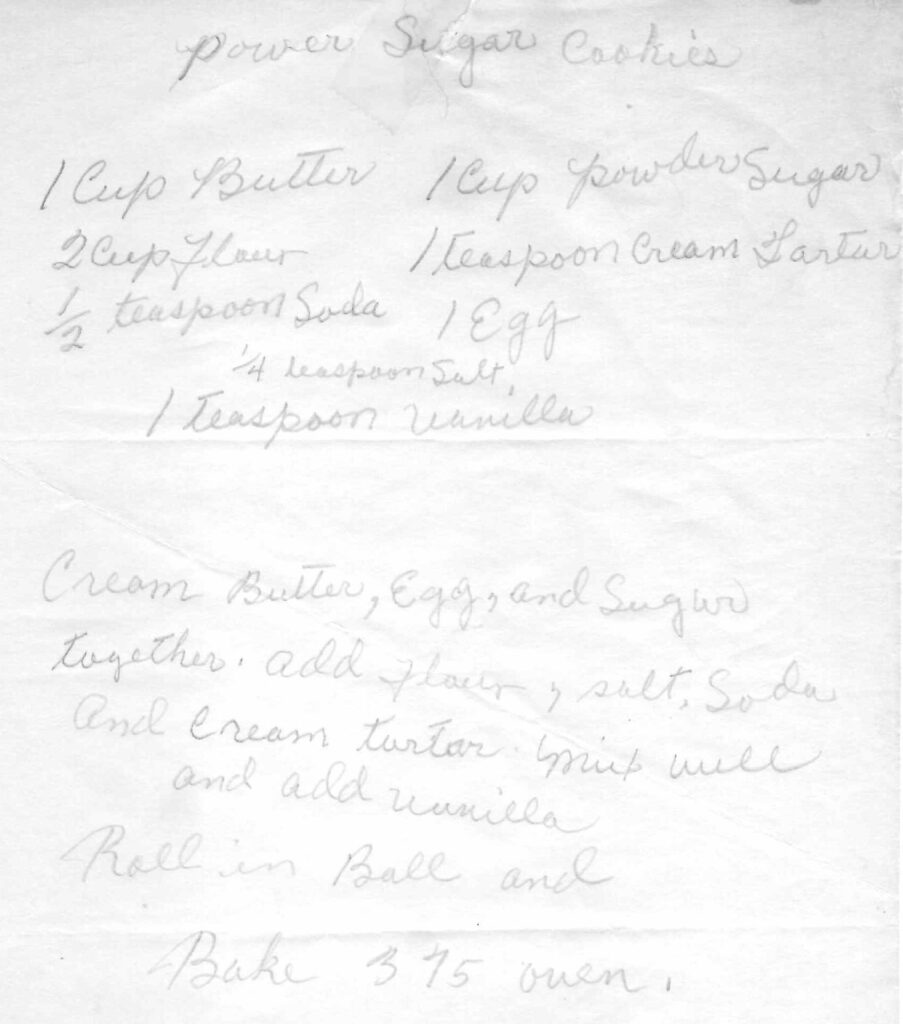 Power Sugar Cookies
1 Cup Butter 1 Cup Powder Sugar
2 Cup Flour 1 teaspoon Cream Tartar
1/2 teaspoon Soda 1 Egg
1/4 teaspoon Salt,
1 teaspoon vanilla
Cream Butter, Egg, and Sugar
together. add Flour, salt, Soda
And Cream tartar. Mix well
and add vanilla
Roll in Ball and
Bake 375 oven.